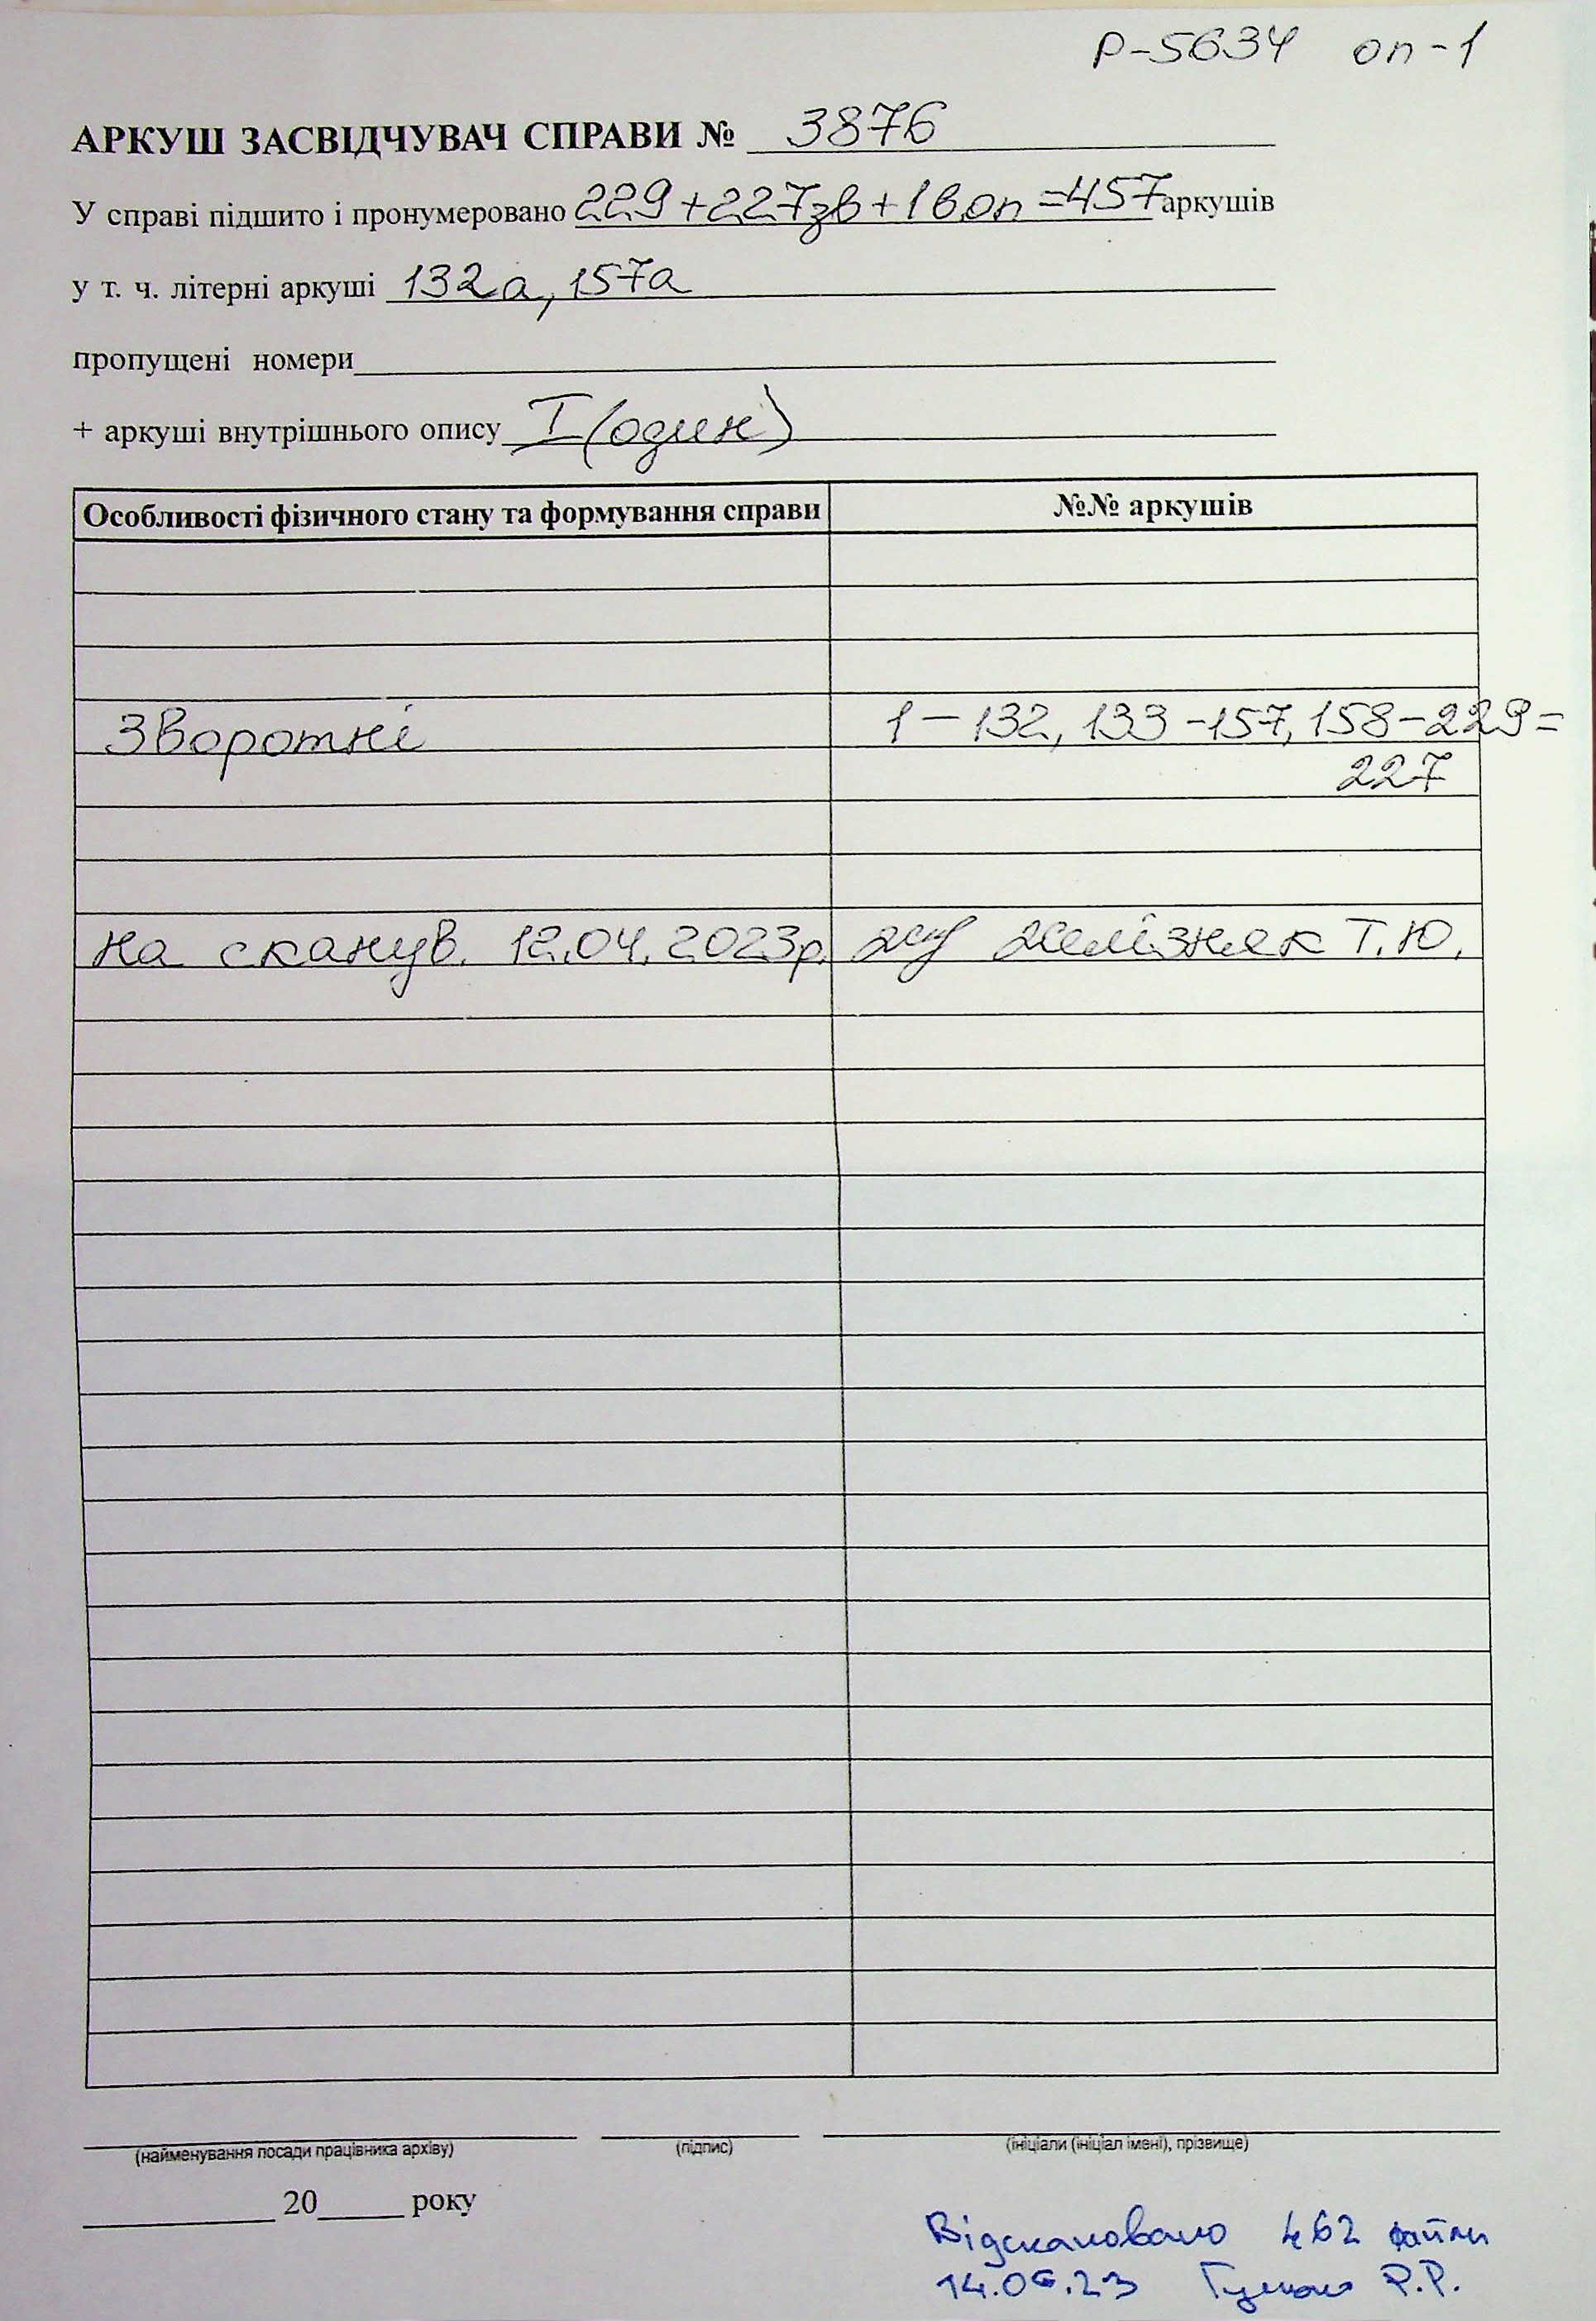 Р-5634 оп-1
АРКУШ ЗАСВІДЧУВАЧ СПРАВИ № 3876
У справі підшито і пронумеровано 229+227зв+1в.оп=457 аркушів
у т. ч. літерні аркуші 132а, 157а
пропущені номери
+ аркуші внутрішнього опису I (один)
Особливості фізичного стану та формування справи №№ аркушів
Зворотні 1-132, 133-157, 158-229=
227
на сканув. 12.04.2023р. Желізняк Т.Ю.
(найменування посади працівника архіву) (підпис) (ініціали (ініціал імені), прізвище)
20 року
Відскановано 462 файли
14.06.23 Р.Р.